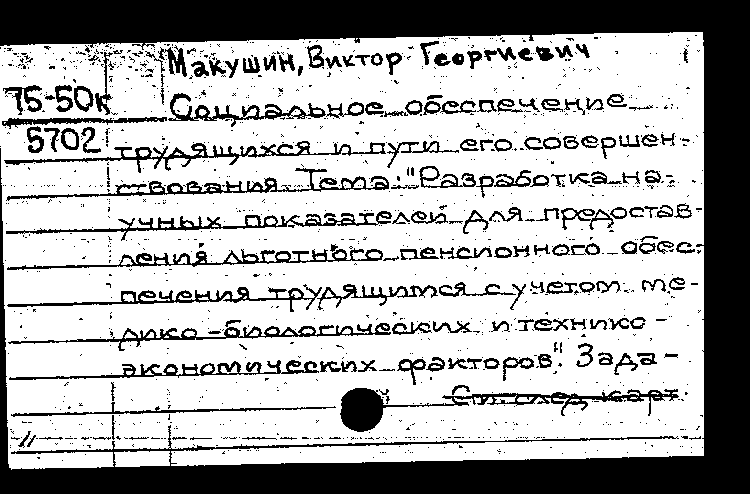 Макушин, Виктор Георгиевич
75-50к
Социальное обеспечение
5702
трудящихся и пути его совершен-
ствования. Тема: "Разработка на-
учных показателей для предостав-
ления льготного пенсионного обес-
печения трудящимся с учетом ме-
дико-биологических и технико-
экономических факторов". Зада-
См. след. карт.